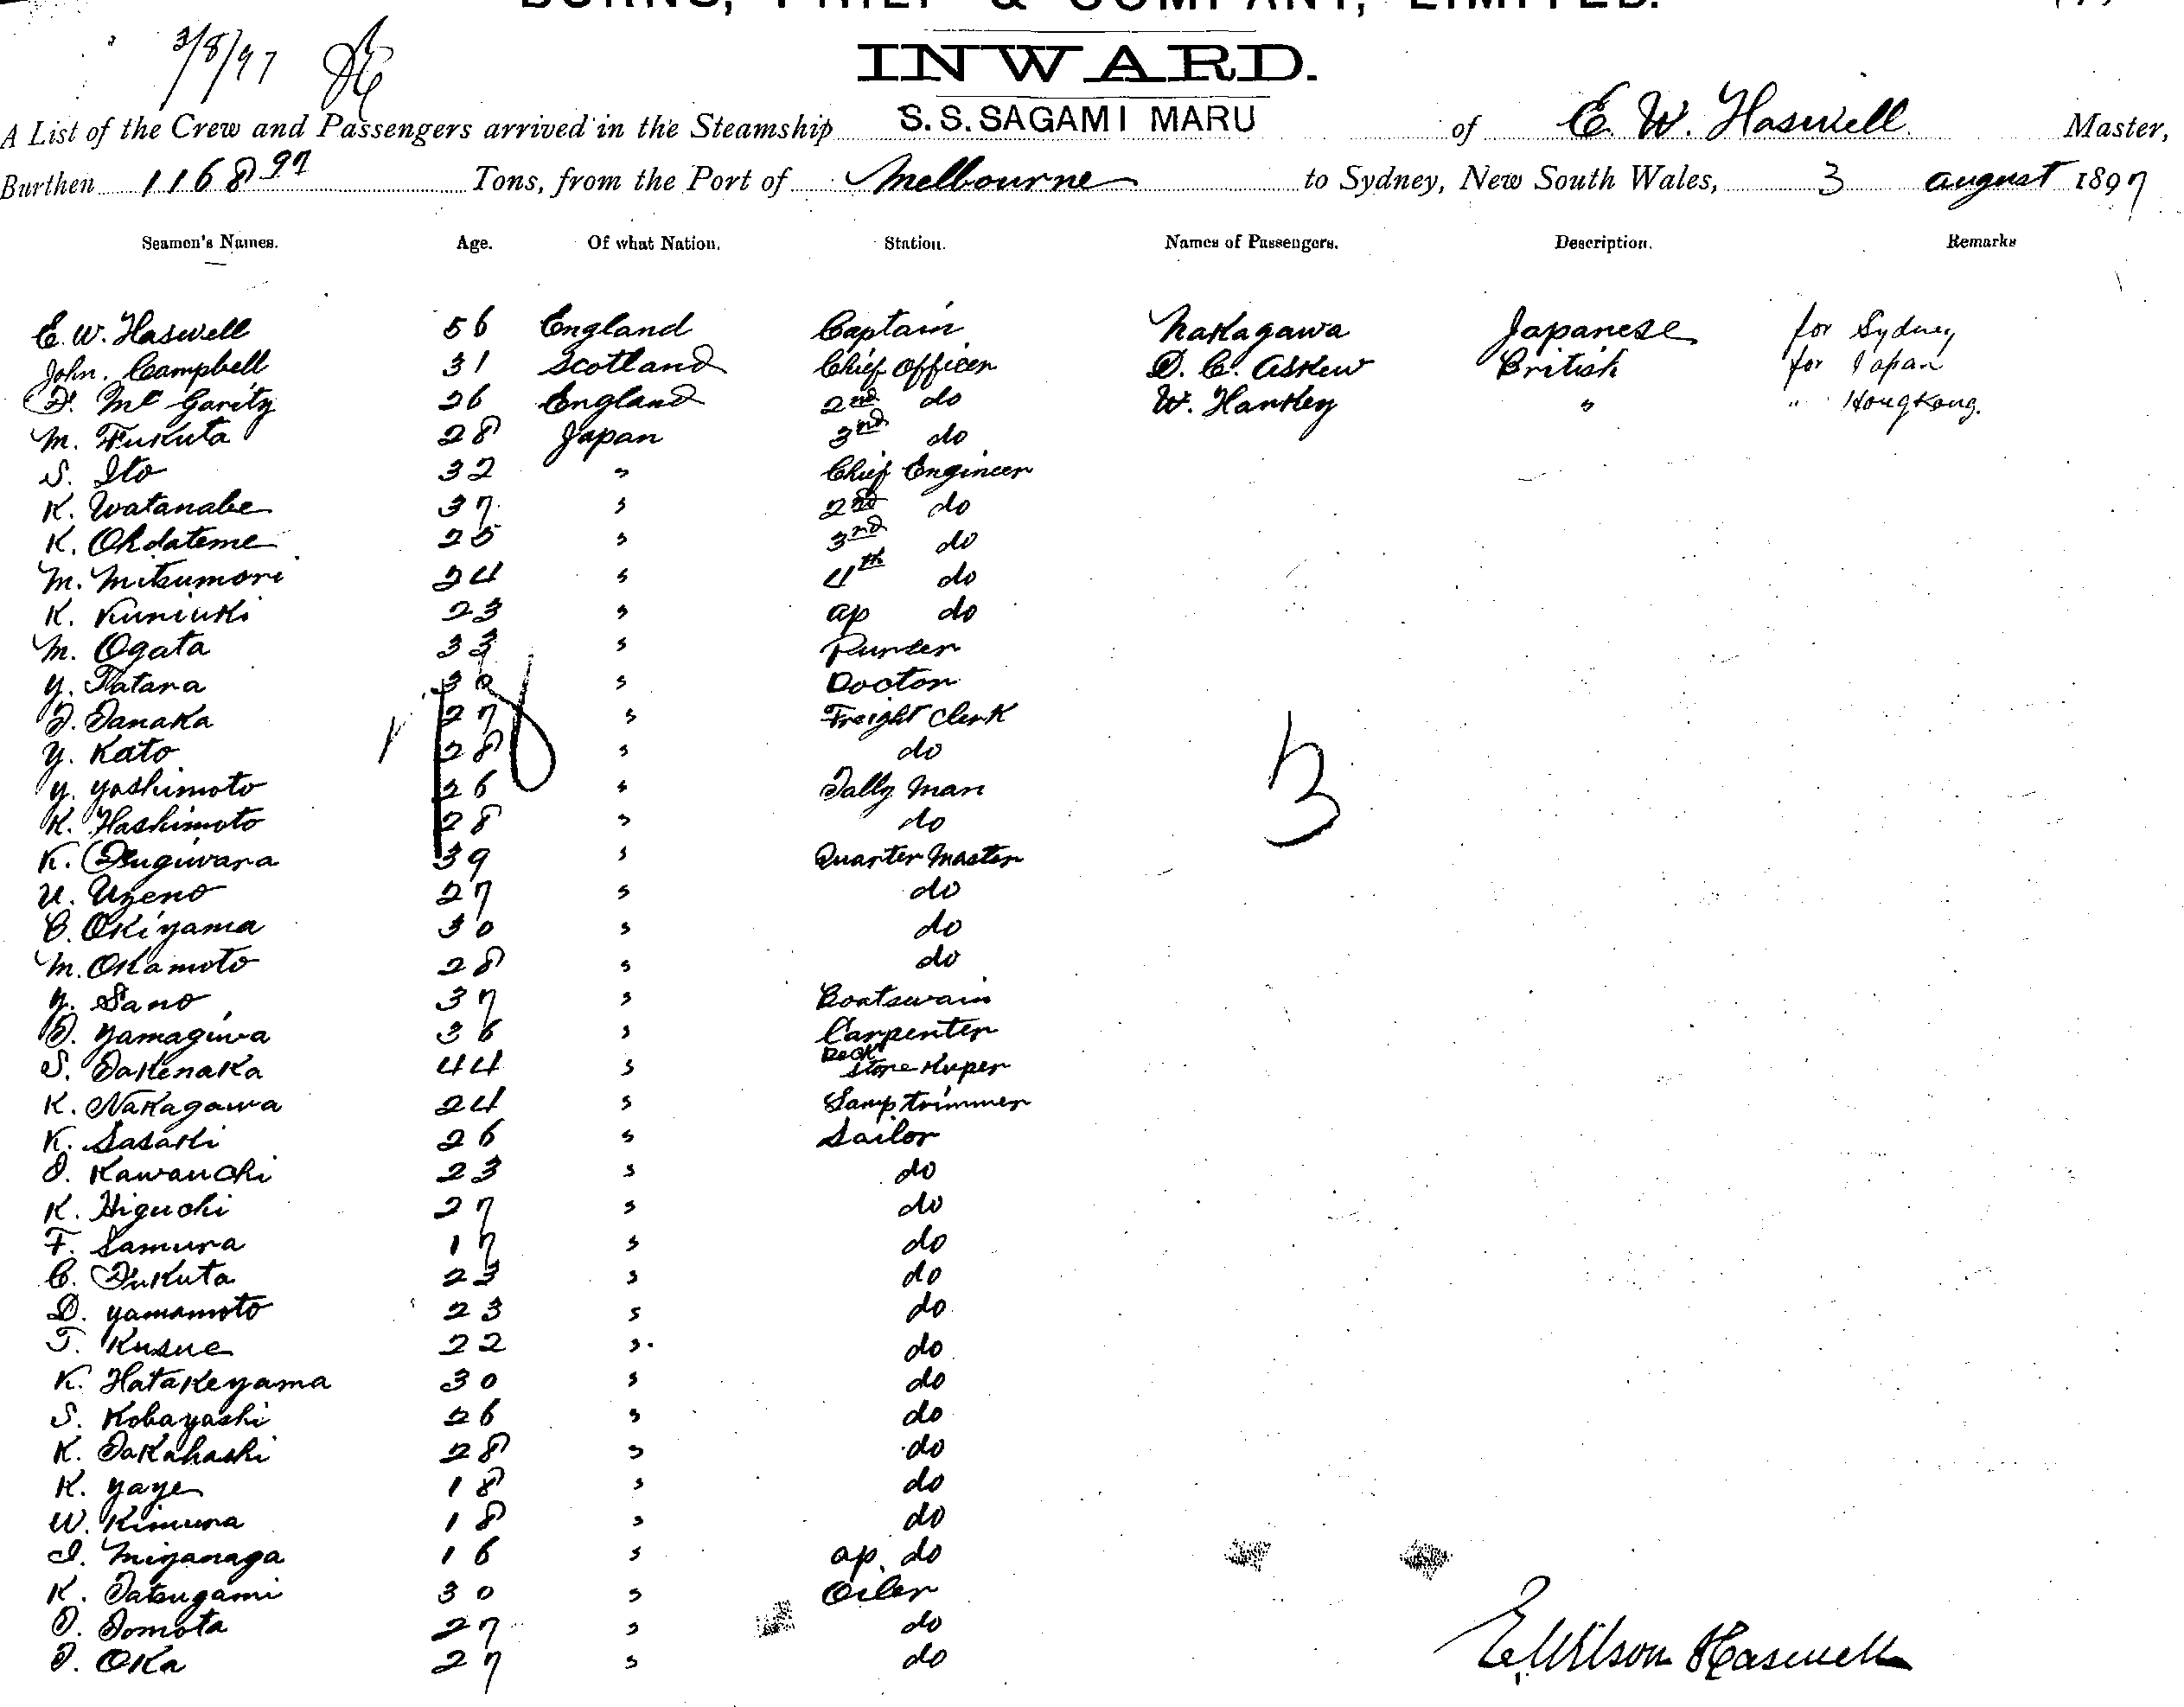 BURNS, PHILP & COMPANY, LIMITED.
3/8/97
INWARD.
A List of the Crew and Passengers arrived in the Steamship S.S. SAGAMI MARU of E. W. Haswell Master,
Burthen 1168 97 Tons, from the Port of Melbourne to Sydney, New South Wales, 3 August 1897
Seamen's Names. Age. Of what Nation. Station. Names of Passengers. Description. Remarks
E. W. Haswell 56 England Captain Nakagawa Japanese for Sydney
John. Campbell 31 Scotland Chief Officer D. C. Askew British for Japan
Mc Garity 26 England 2nd do W. Hankey " " HongKong.
M. Fukuta 28 Japan 3nd do
S. Ito 32 " Chief Engineer
K. Watanabe 37 " 2nd do
K. Ohdateme 25 " 3nd do
M. Mitsumori 24 " 4th do
K. Kuniuki 23 " ap do
M. Ogata 33 " Purser
Y. Tatara 30 " Doctor
T. Tanaka 27 " Freight Clerk
Y. Kato 28 " do
Y. Yoshimoto 26 " Tally Man
K. Hashimoto 28 " do
K. Sugiwara 39 " Quarter Master
U. Uzeno 27 " do
C. Okiyama 30 " do
M. Okamoto 28 " do
Y. Sano 37 " Boatswain
Yamagiwa 36 " Carpenter
S. Takenaka 44 " Deck Store Keper
K. Nakagawa 24 " Lamp trimmer
K. Sasaki 26 " Sailor
Kawauchi 23 " do
K. Higuchi 27 " do
F. Samura 17 " do
C. Fukuta 23 " do
D. Yamamoto 23 " do
T. Kusue 22 " do
K. Hatakeyama 30 " do
S. Kobayashi 26 " do
K. Takahashi 28 " do
K. Yaye 18 " do
W. Kimura 18 " do
I. Miyanaga 16 " ap. do
K. Tatsugami 30 " Oiler
T. Tomota 27 " do
T. Oka 27 " do
3
E. Wilson Haswell